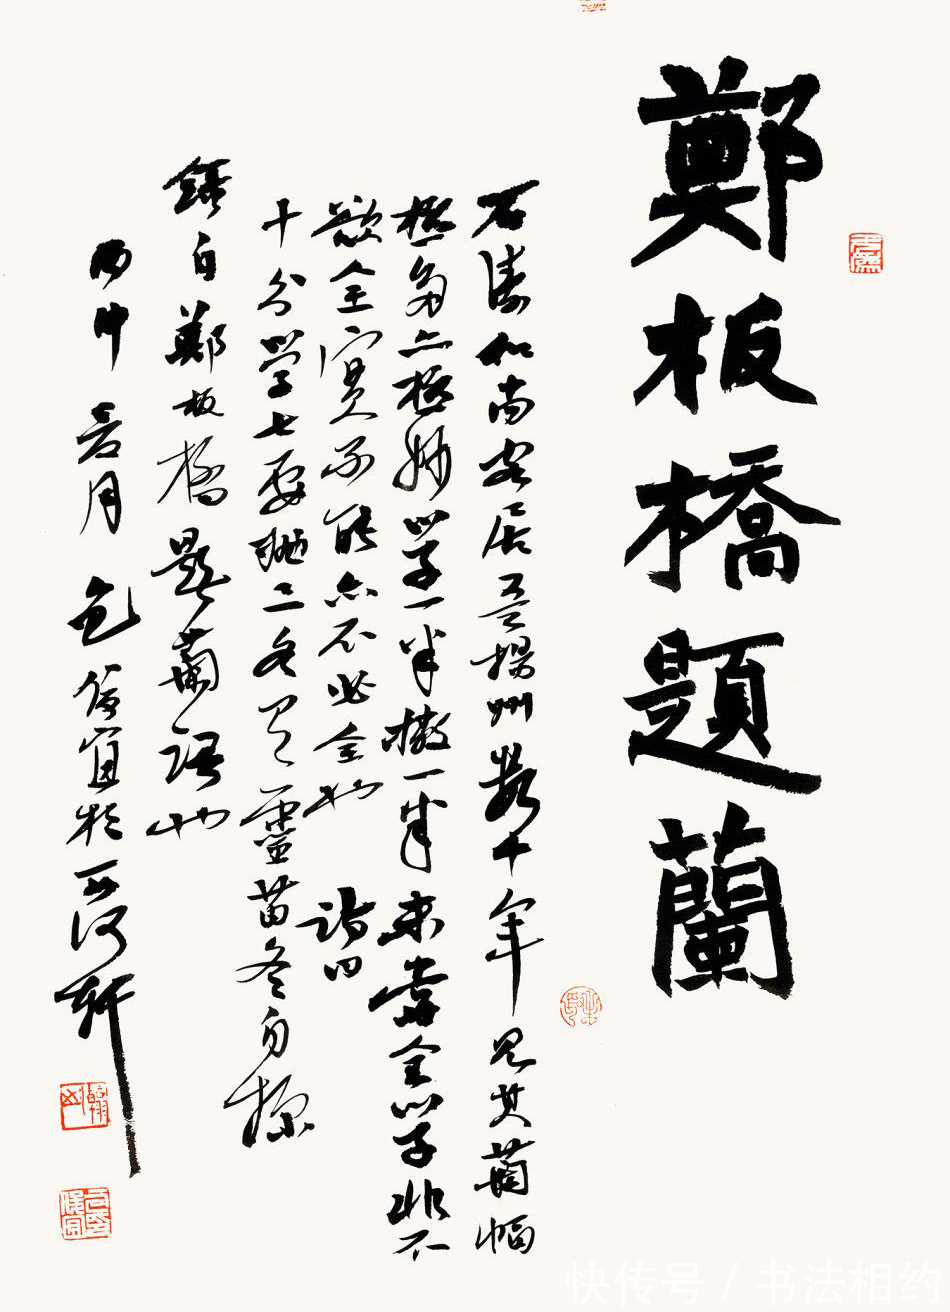 鄭板橋題蘭
石濤和尚客居吾揚州數十年見其蘭幅
極多亦極妙學一半撇一半未嘗全學非不
欲全實不能亦不必全也 詩曰
十分學七要拋三各有靈苗各自探
錄自鄭板橋題蘭語也
丙申 月 俊宜於 河軒
快传号 / 书法相约